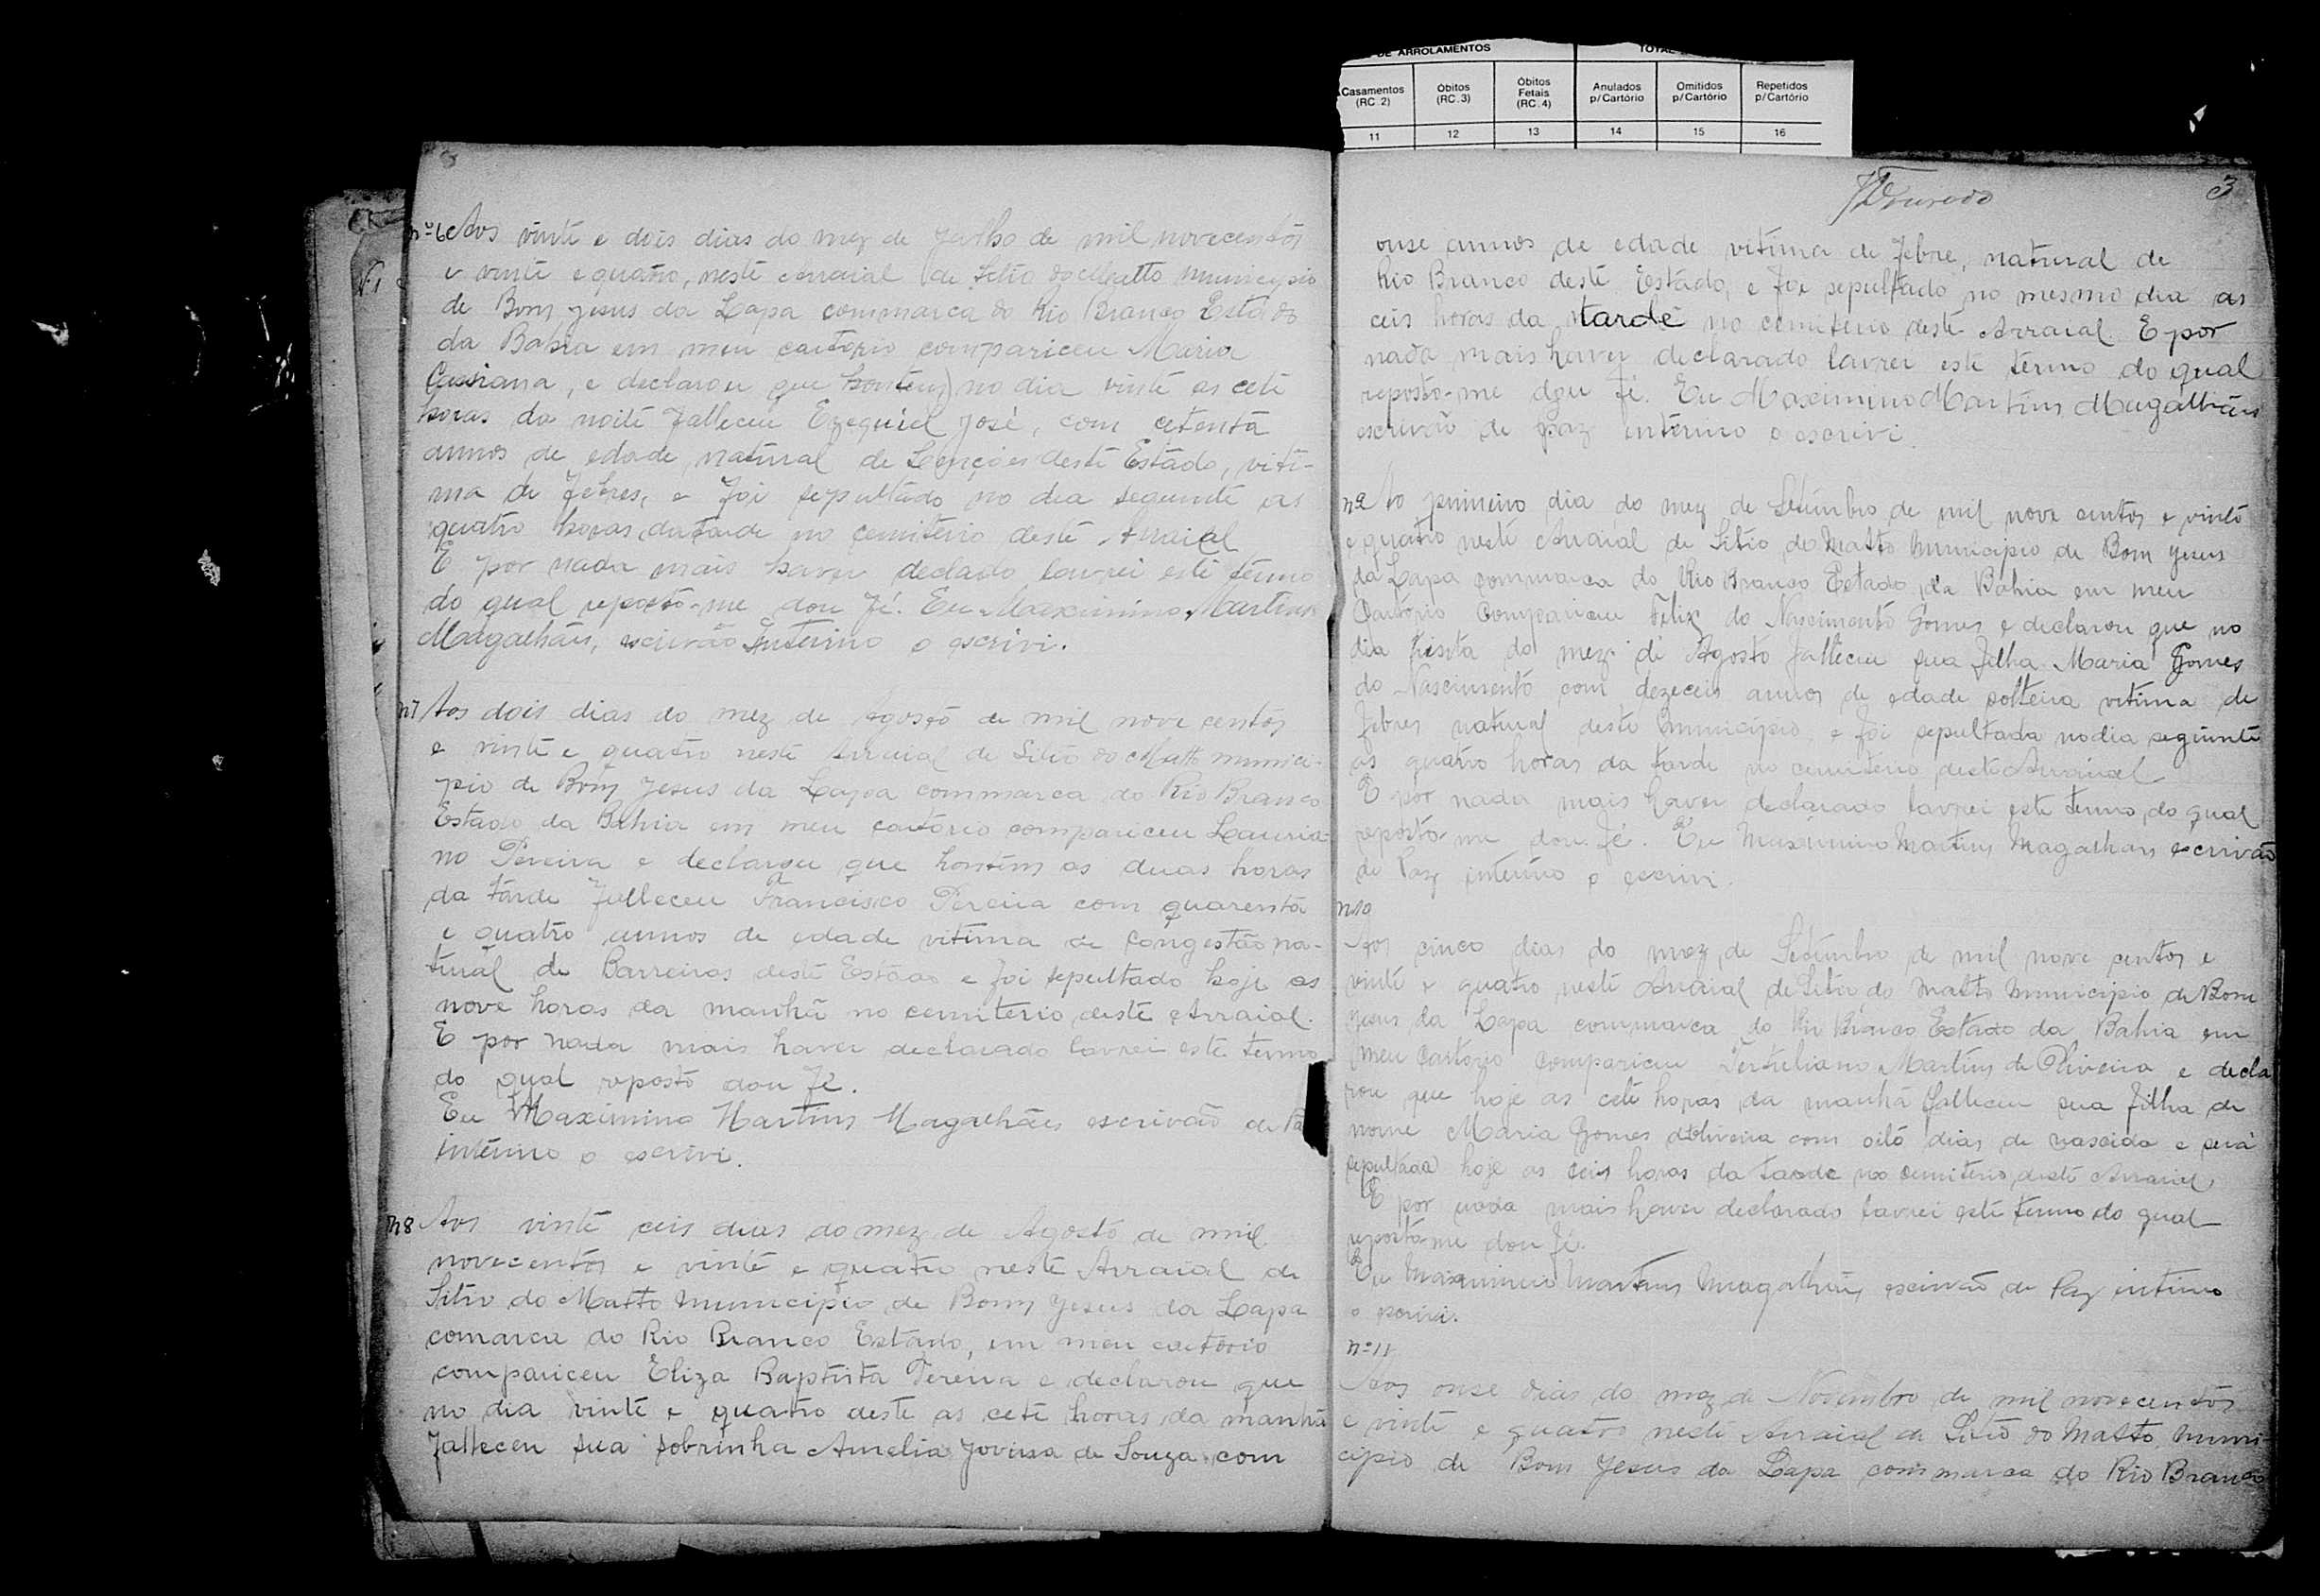 DE ARROLAMENTOS
Casamentos (RC.2) Óbitos (RC.3) Óbitos Fetais (RC.4) Anulados p/Cartório Omitidos p/Cartório Repetidos p/Cartório
11 12 13 14 15 16
nº6 Aos vinte e dois dias do mez de Julho de mil novecentos
e vinte e quatro, neste Arraial de Sitio do Matto municipio
de Bom Jesus da Lapa commarca do Rio Branco Estado
da Bahia em meu cartorio compariceu Maria
Cassiana, e declarou que hontem no dia vinte as cete
horas da noite falleceu Ezequiel José, com cetenta
annos de edade, natural de Lençoes deste Estado, viti-
ma de febres, e foi sepultado no dia seguinte as
quatro horas da tarde no cemiterio deste Arraial
E por nada mais haver declado lavrei este termo
do qual reposto-me dou fé. Eu Maximino Martins
Magalhães, escrivão Interino o escrivi.
n7 Aos dois dias do mez de Agosto de mil nove centos
e vinte e quatro neste Arraial de Sitio do Matto munici-
pio de Bom Jesus da Lapa commarca do Rio Branco
Estado da Bahia em meu cartorio compariceu Lauria-
no Pereira e declarou que hontem as duas horas
da tarde falleceu Francisco Pereira com quarenta
e quatro annos de edade vitima de congestão na-
tural de Barreiras deste Estado e foi sepultado hoje as
nove horas da manhã no cemiterio deste Arraial.
E por nada mais haver declarado lavrei este termo
do qual reposto dou fé.
Eu Maximino Martins Magalhães escrivão de Pa
interino o escrivi.
n8 Aos vinte ceis dias do mez de Agosto de mil
novecentos e vinte e quatro neste Arraial de
Sitio do Matto Municipio de Bom Jesus da Lapa
comarca do Rio Branco Estado, em meu cartorio
compariceu Eliza Baptista Pereira e declarou que
no dia vinte e quatro deste as cete horas da manhã
falleceu sua sobrinha Amelia Jovina de Souza com
3
onse annos de edade vitima de febre, natural de
Rio Branco deste Estado, e foi sepultado no mesmo dia as
ceis horas da tarde no cemiterio deste Arraial E por
nada mais haver declarado lavrei este termo do qual
reposto-me dou fé. Eu Maximino Martins Magalhães
escrivão de paz interino o escrivi.
n9 Ao primeiro dia do mez de Setembro de mil nove centos e vinte
e quatro neste Arraial de Sitio do Matto Municipio de Bom Jesus
da Lapa commarca do Rio Branco Estado da Bahia em meu
Cartorio Compariceu Felix do Nascimento Gomes e declarou que no
dia trista do mez de Agosto falleceu sua filha Maria Gomes
do Nascimento com dezeceis annos de edade solteira vitima de
febres natural deste Municipio e foi sepultada no dia seguinte
as quatro horas da tarde no cemiterio deste Arraial
E por nada mais haver declarado lavrei este termo, do qual
reposto-me dou fé. Eu Maximino Martins Magalhães escrivão
de Paz interino o escrivi.
n10
Aos cinco dias do mez de Setembro de mil nove centos e
vinte e quatro neste Arraial de Sitio do Matto Municipio de Bom
Jesus da Lapa commarca do Rio Branco Estado da Bahia em
meu Cartorio Compariceu Tertuliano Martins de Oliveira e decla
rou que hoje as cete horas da manhã falleceu sua filha de
nome Maria Gomes d'Oliveira com oito dias de nascida e será
sepultada hoje as ceis horas da tarde no cemiterio deste Arraial
E por nada mais haver declarado lavrei este termo do qual
reposto-me dou fé.
Eu Maximino Martins Magalhães, escrivão de Paz interino
o escrivi.
nº11
Aos onse dias do mez de Novembro de mil novecentos
e vinte e quatro neste Arraial de Sitio do Matto, Muni-
cipio de Bom Jesus da Lapa commarca do Rio Branco